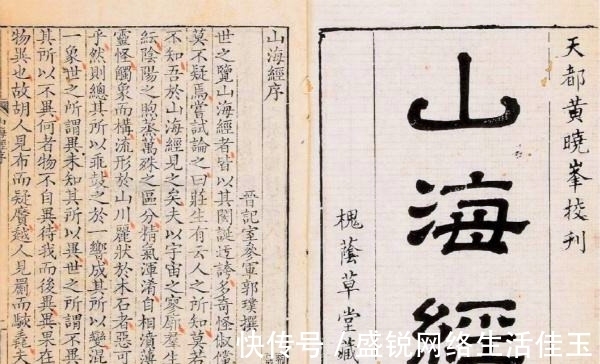 天都黄曉峯挍刊
山海經
槐蔭草堂藏
山海經序
晉記室參軍郭璞撰
世之覽山海經者皆以其閎誕迂誇多奇怪俶儻
莫不疑焉嘗試論之曰莊生有云人之所知莫若
不知吾於山海經見之矣夫以宇宙之寥廓羣生
紜陰陽之煦蒸萬殊之區分精氣渾淆自相濆薄
靈怪觸象而構流形於山川麗狀於木石者惡可
乎然則總其所以乖鼓之於一響成其所以變混
一象世之所謂異未知其所以異世之所謂不
其所以不異何者物不自異待我而後異異果在
物異也故胡人見布而疑黂越人見罽而駭毳夫
快传号/盛锐网络生活佳玉